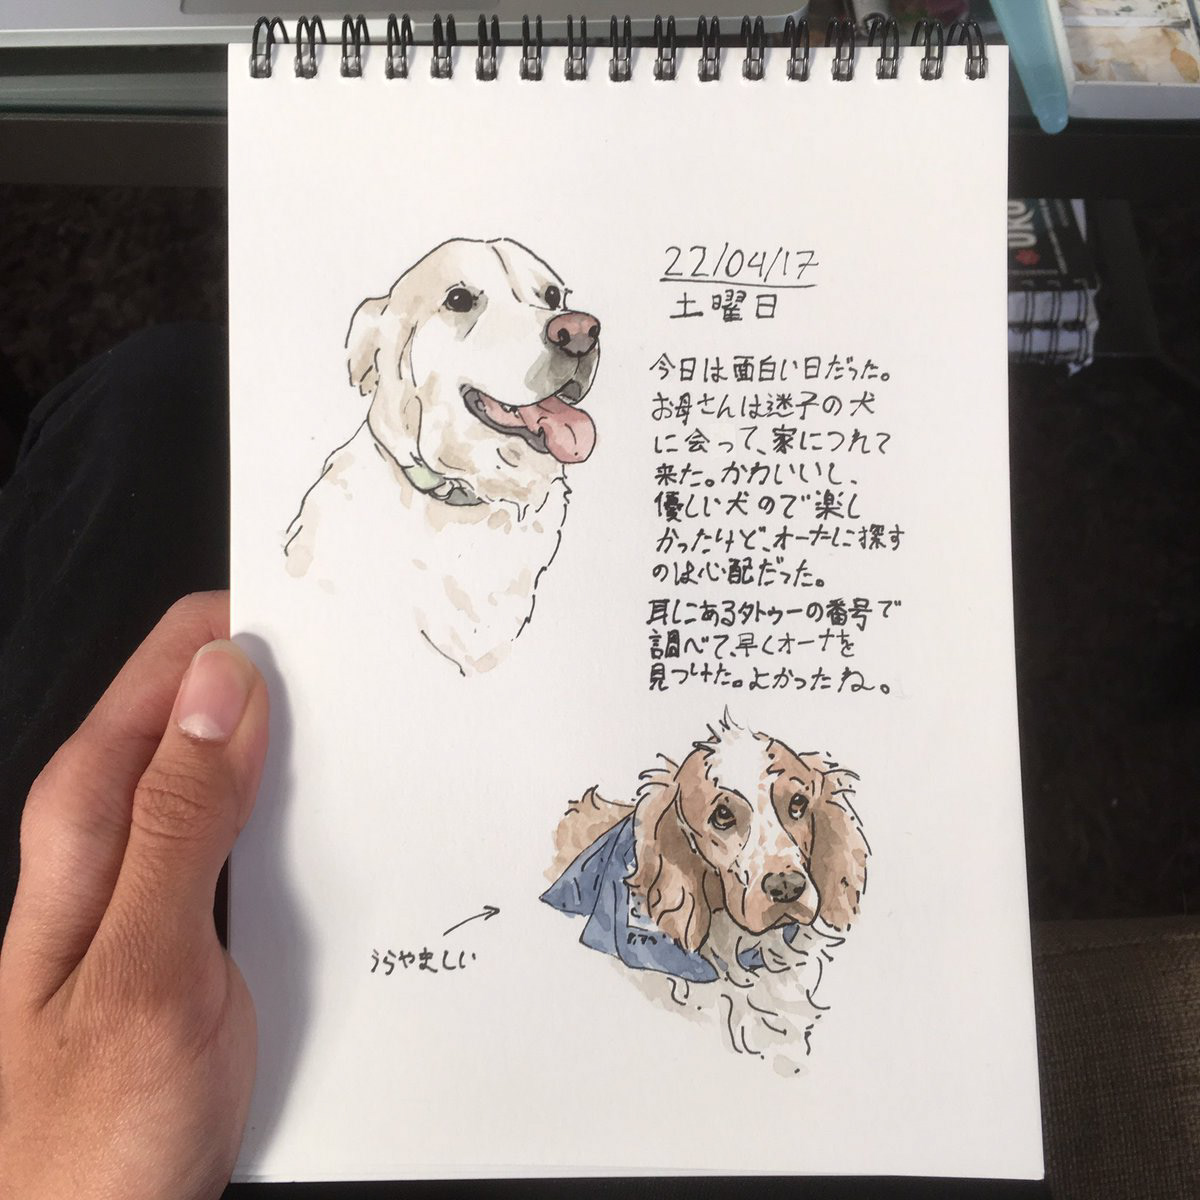 22/04/17
土曜日
今日は面白い日だった。
お母さんは迷子の犬
に会って、家につれて
来た。かわいいし、
優しい犬ので楽し
かったけど、オーナに探す
のは心配だった。
耳しにあるタトゥーの番号で
調べて、早くオーナを
見つけた。よかったね。
うらやましい